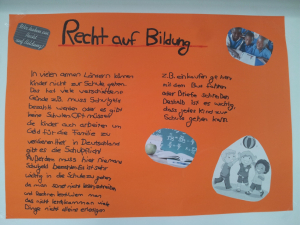 Recht auf Bildung
In vielen armen Ländern können
Kinder nicht zur Schule gehen.
Das hat viele verschiedene
Gründe z.B. muss Schulgeld
bezahlt werden oder es gibt
keine Schulen. Oft müssen
die Kinder auch arbeiten um
Geld für die Familie zu
verdienen. In Deutschland
gibt es die Schulpflicht.
Außerdem muss hier niemand
Schulgeld bezahlen. Es ist sehr
wichtig in die Schule zu gehen
da man sonst nicht lesen, schreiben
und rechnen lernt. Wenn man
das nicht lernt kann man viele
Dinge nicht alleine erledigen
z.B. einkaufen gehen,
mit dem Bus fahren
oder Briefe schreiben.
Deshalb ist es wichtig,
dass jedes Kind zur
Schule gehen kann.